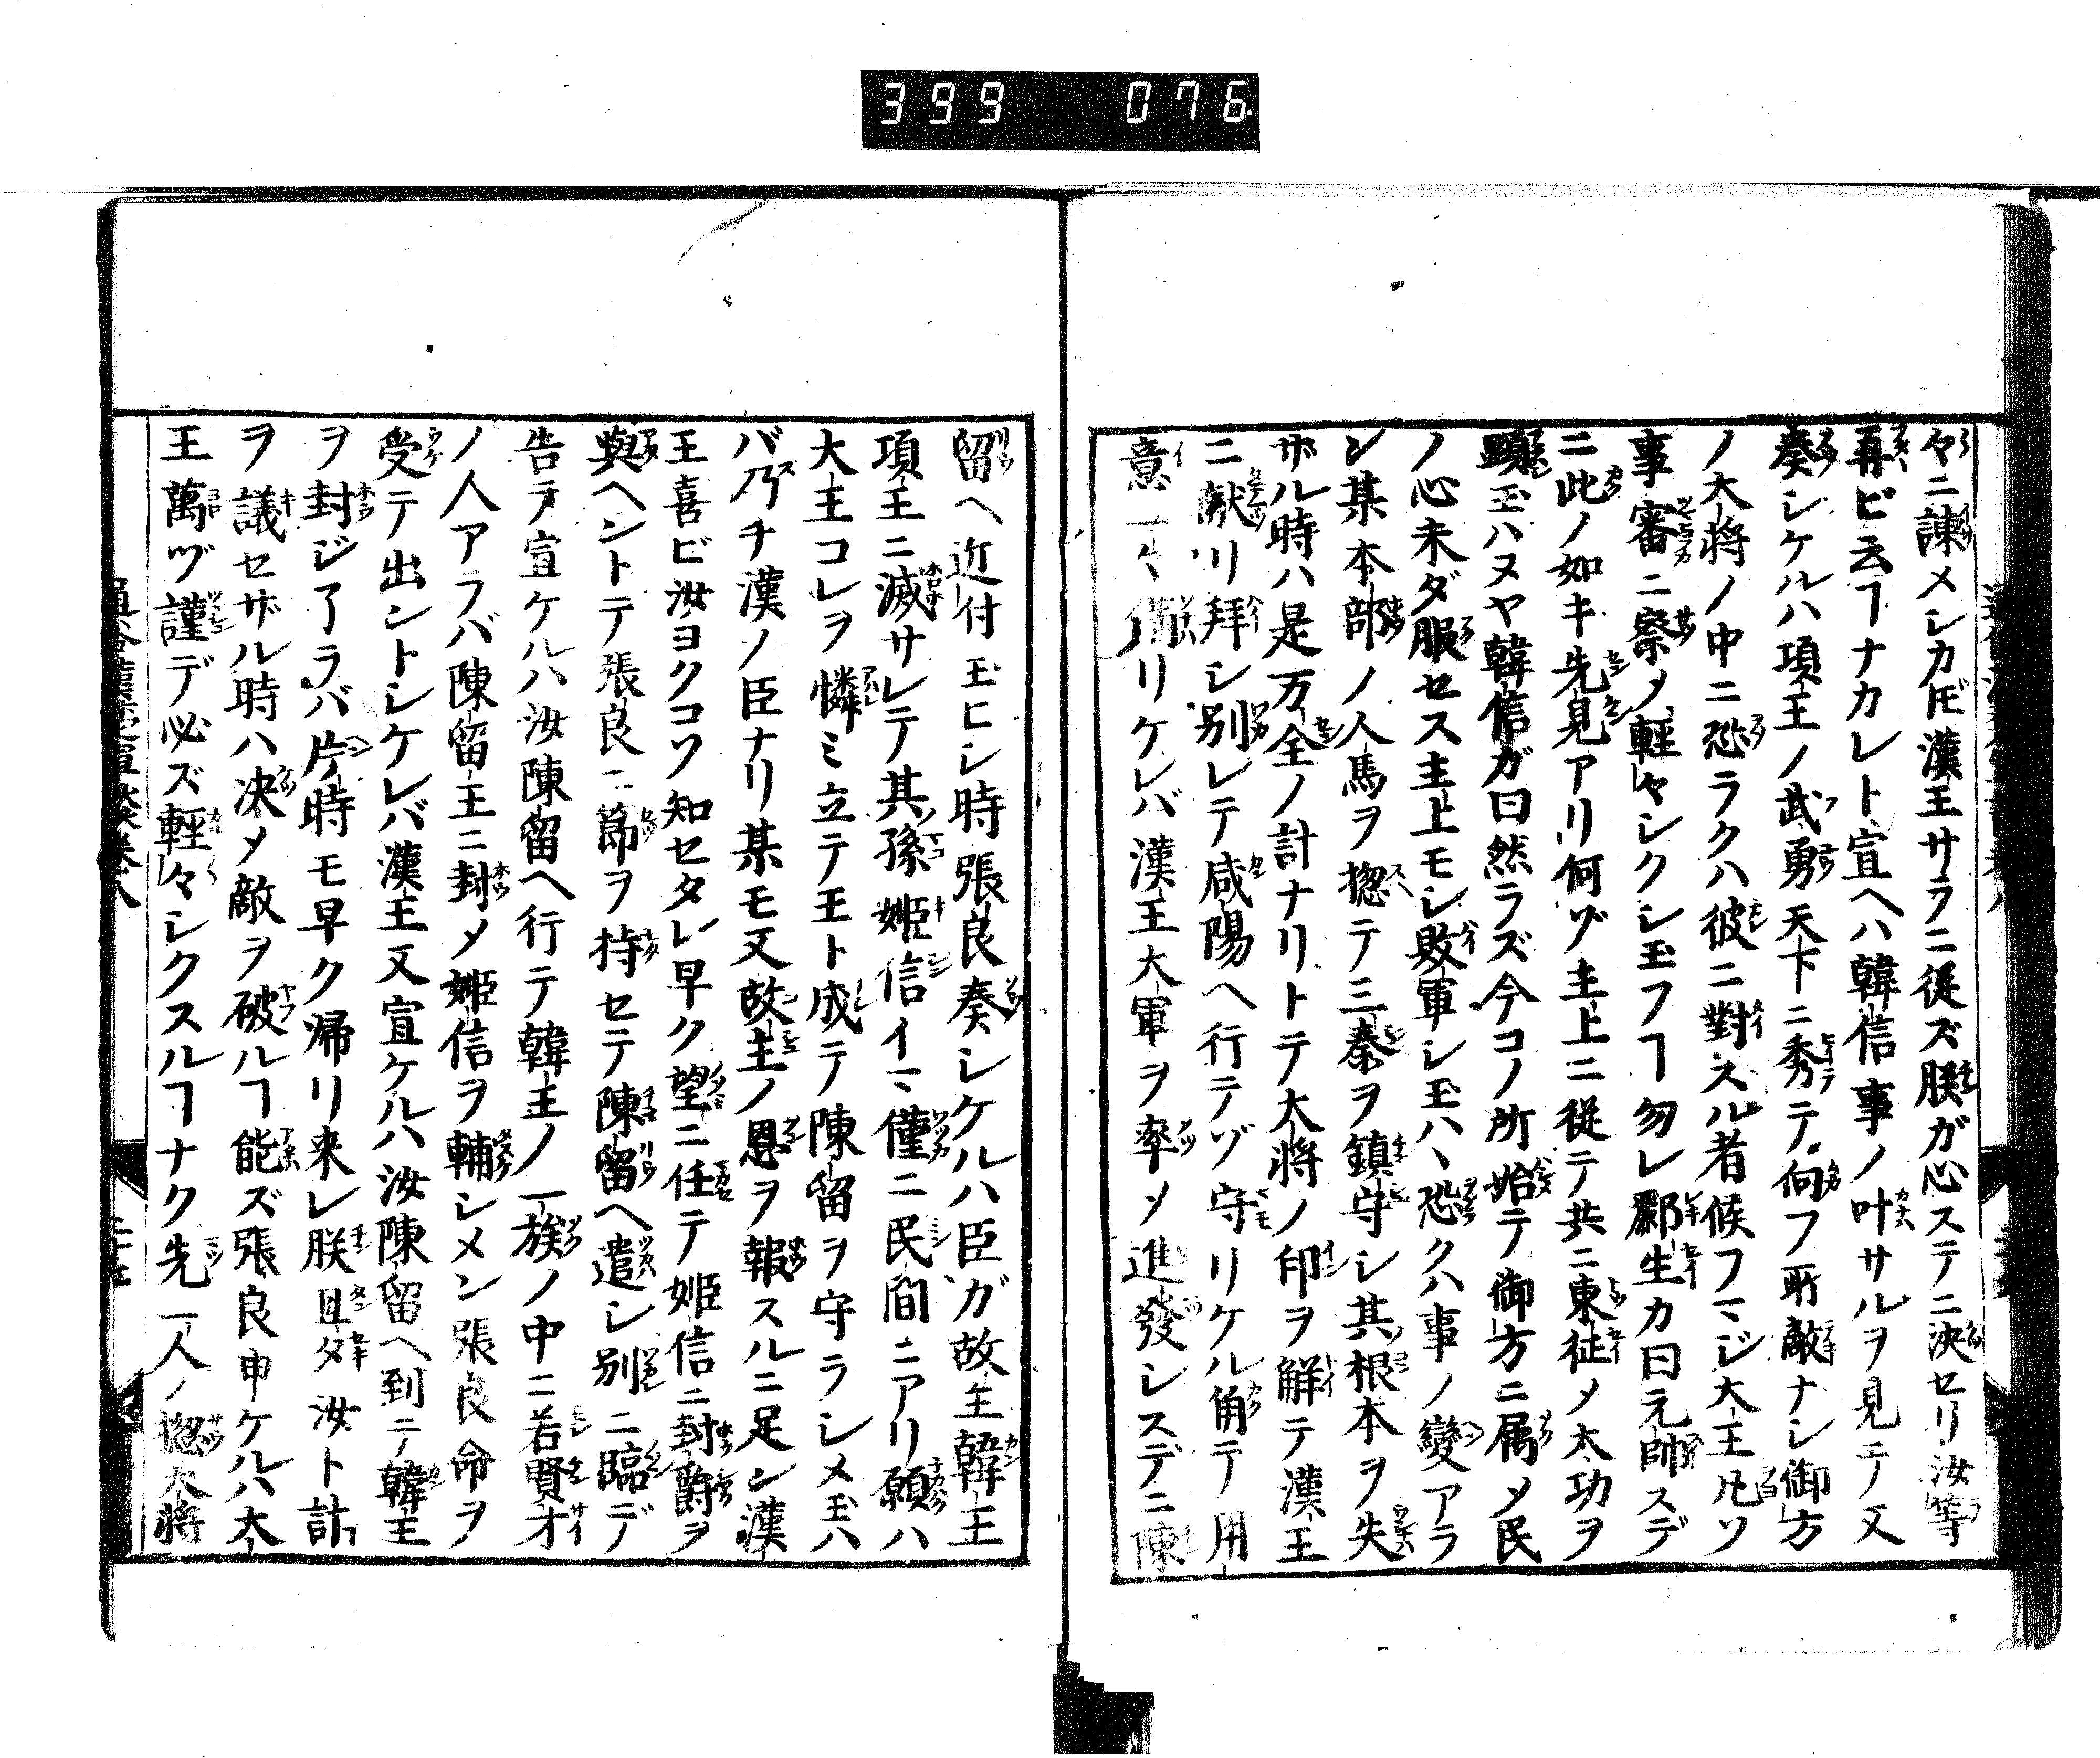 399 076
々ニ諫メシカ𪜈漢王サラニ従ズ朕ガ心ステニ决セリ汝等
再ビ云ヿナカレト宣ヘハ韓信事ノ叶サルヲ見テ又
奏シケルハ項王ノ武勇天下ニ秀テ向フ所敵ナシ御方
ノ大将ノ中ニ恐ラクハ彼ニ對スル者候フマジ大王凡ソ
事審ニ察メ軽々シクシ玉フヿ勿レ酈生カ曰元帥スデ
ニ此ノ如キ先見アリ何ゾ主上ニ従テ共ニ東征メ大功ヲ
顕玉ハヌヤ韓信ガ曰然ラズ今コノ所始テ御方ニ属メ民
ノ心未ダ服セス主上モシ敗軍シ玉ハヽ恐クハ事ノ變アラ
ン某本部ノ人馬ヲ揔テ三秦ヲ鎮守シ其根本ヲ失
ザル時ハ是万全ノ計ナリトテ大将ノ印ヲ觧テ漢王
ニ献リ拜シ別レテ咸陽ヘ行テゾ守リケル角テ用
意 リケレバ漢王大軍ヲ率メ進發シスデニ陳
留ヘ近付玉ヒシ時張良奏シケルハ臣ガ故主韓王
項王ニ滅サレテ其孫姫信イマ僅ニ民間ニアリ願ハ
大王コレヲ憐ミ立テ王ト成テ陳留ヲ守ラシメ玉ハ
バ乃チ漢ノ臣ナリ某モ又故主ノ恩ヲ報スルニ足ン漢
王喜ビ汝ヨクコソ知セタレ早ク望ニ任テ姫信ニ封爵ヲ
與ヘントテ張良ニ節ヲ持セテ陳留ヘ遣シ別ニ臨デ
告テ宣ケルハ汝陳留ヘ行テ韓王ノ一族ノ中ニ若賢才
ノ人アラバ陳留王ニ封メ姫信ヲ輔シメン張良命ヲ
受テ出ントシケレバ漢王又宣ケルハ汝陳留ヘ到テ韓王
ヲ封ジ了ラバ片時モ早ク帰リ来レ朕旦タ汝ト計
ヲ議セザル時ハ决メ敵ヲ破ルヿ能ズ張良申ケルハ大
王萬ヅ謹デ必ズ軽々シクスルヿナク先一人ノ揔大将